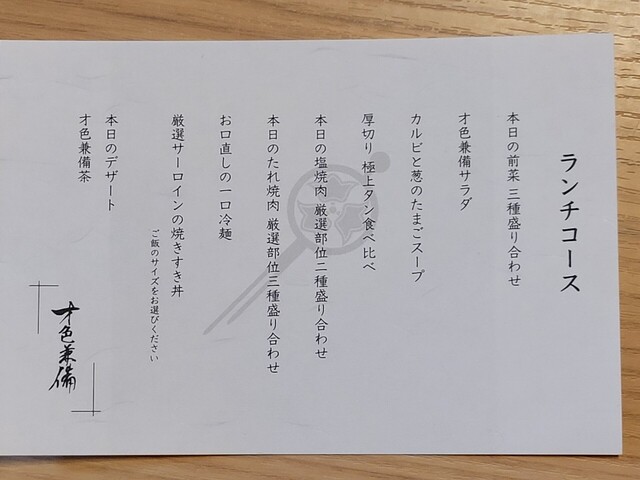 ランチコース
本日の前菜 三種盛り合わせ
才色兼備サラダ
カルビと葱のたまごスープ
厚切り 極上タン食べ比べ
本日の塩焼肉 厳選部位二種盛り合わせ
本日のたれ焼肉 厳選部位三種盛り合わせ
お口直しの一口冷麺
厳選サーロインの焼きすき丼
ご飯のサイズをお選びください
本日のデザート
才色兼備茶
才色兼備